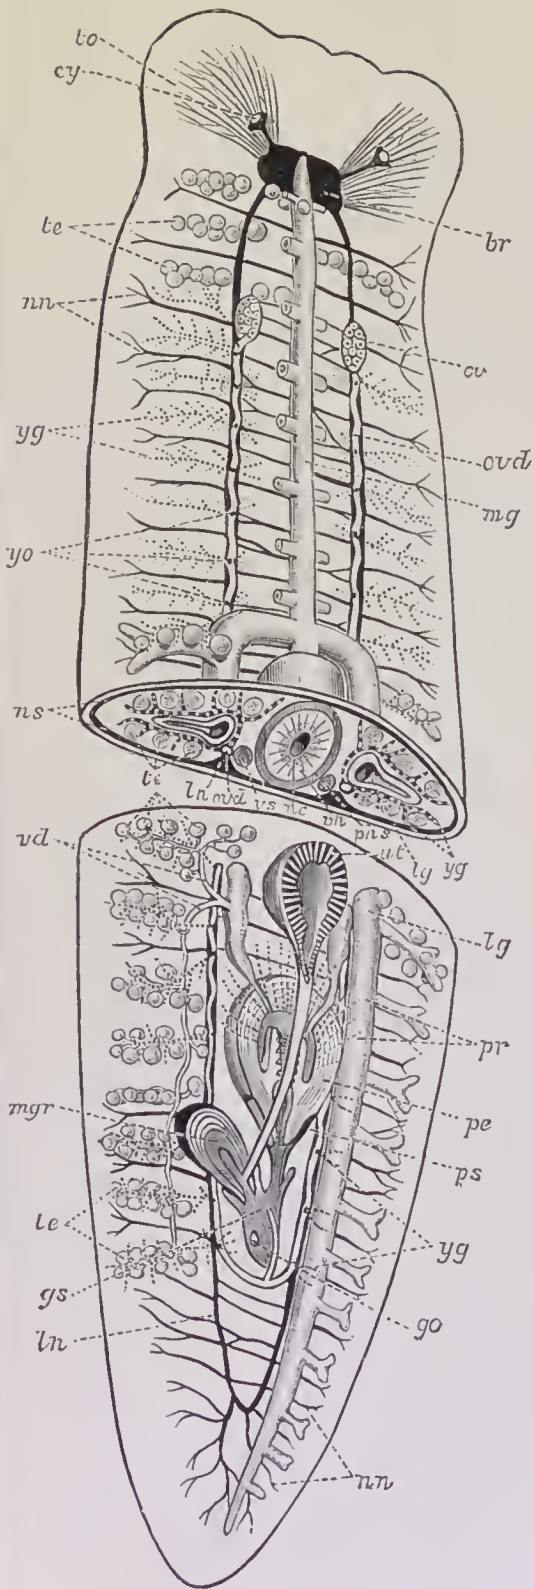 to
cy
br
te
nn
ov
yg
ovd
mg
yo
ns
te
ln ovd vs nc vn pns ly yg
vd
ut
lg
pr
mgr
pe
ps
te
yg
gs
go
ln
nn